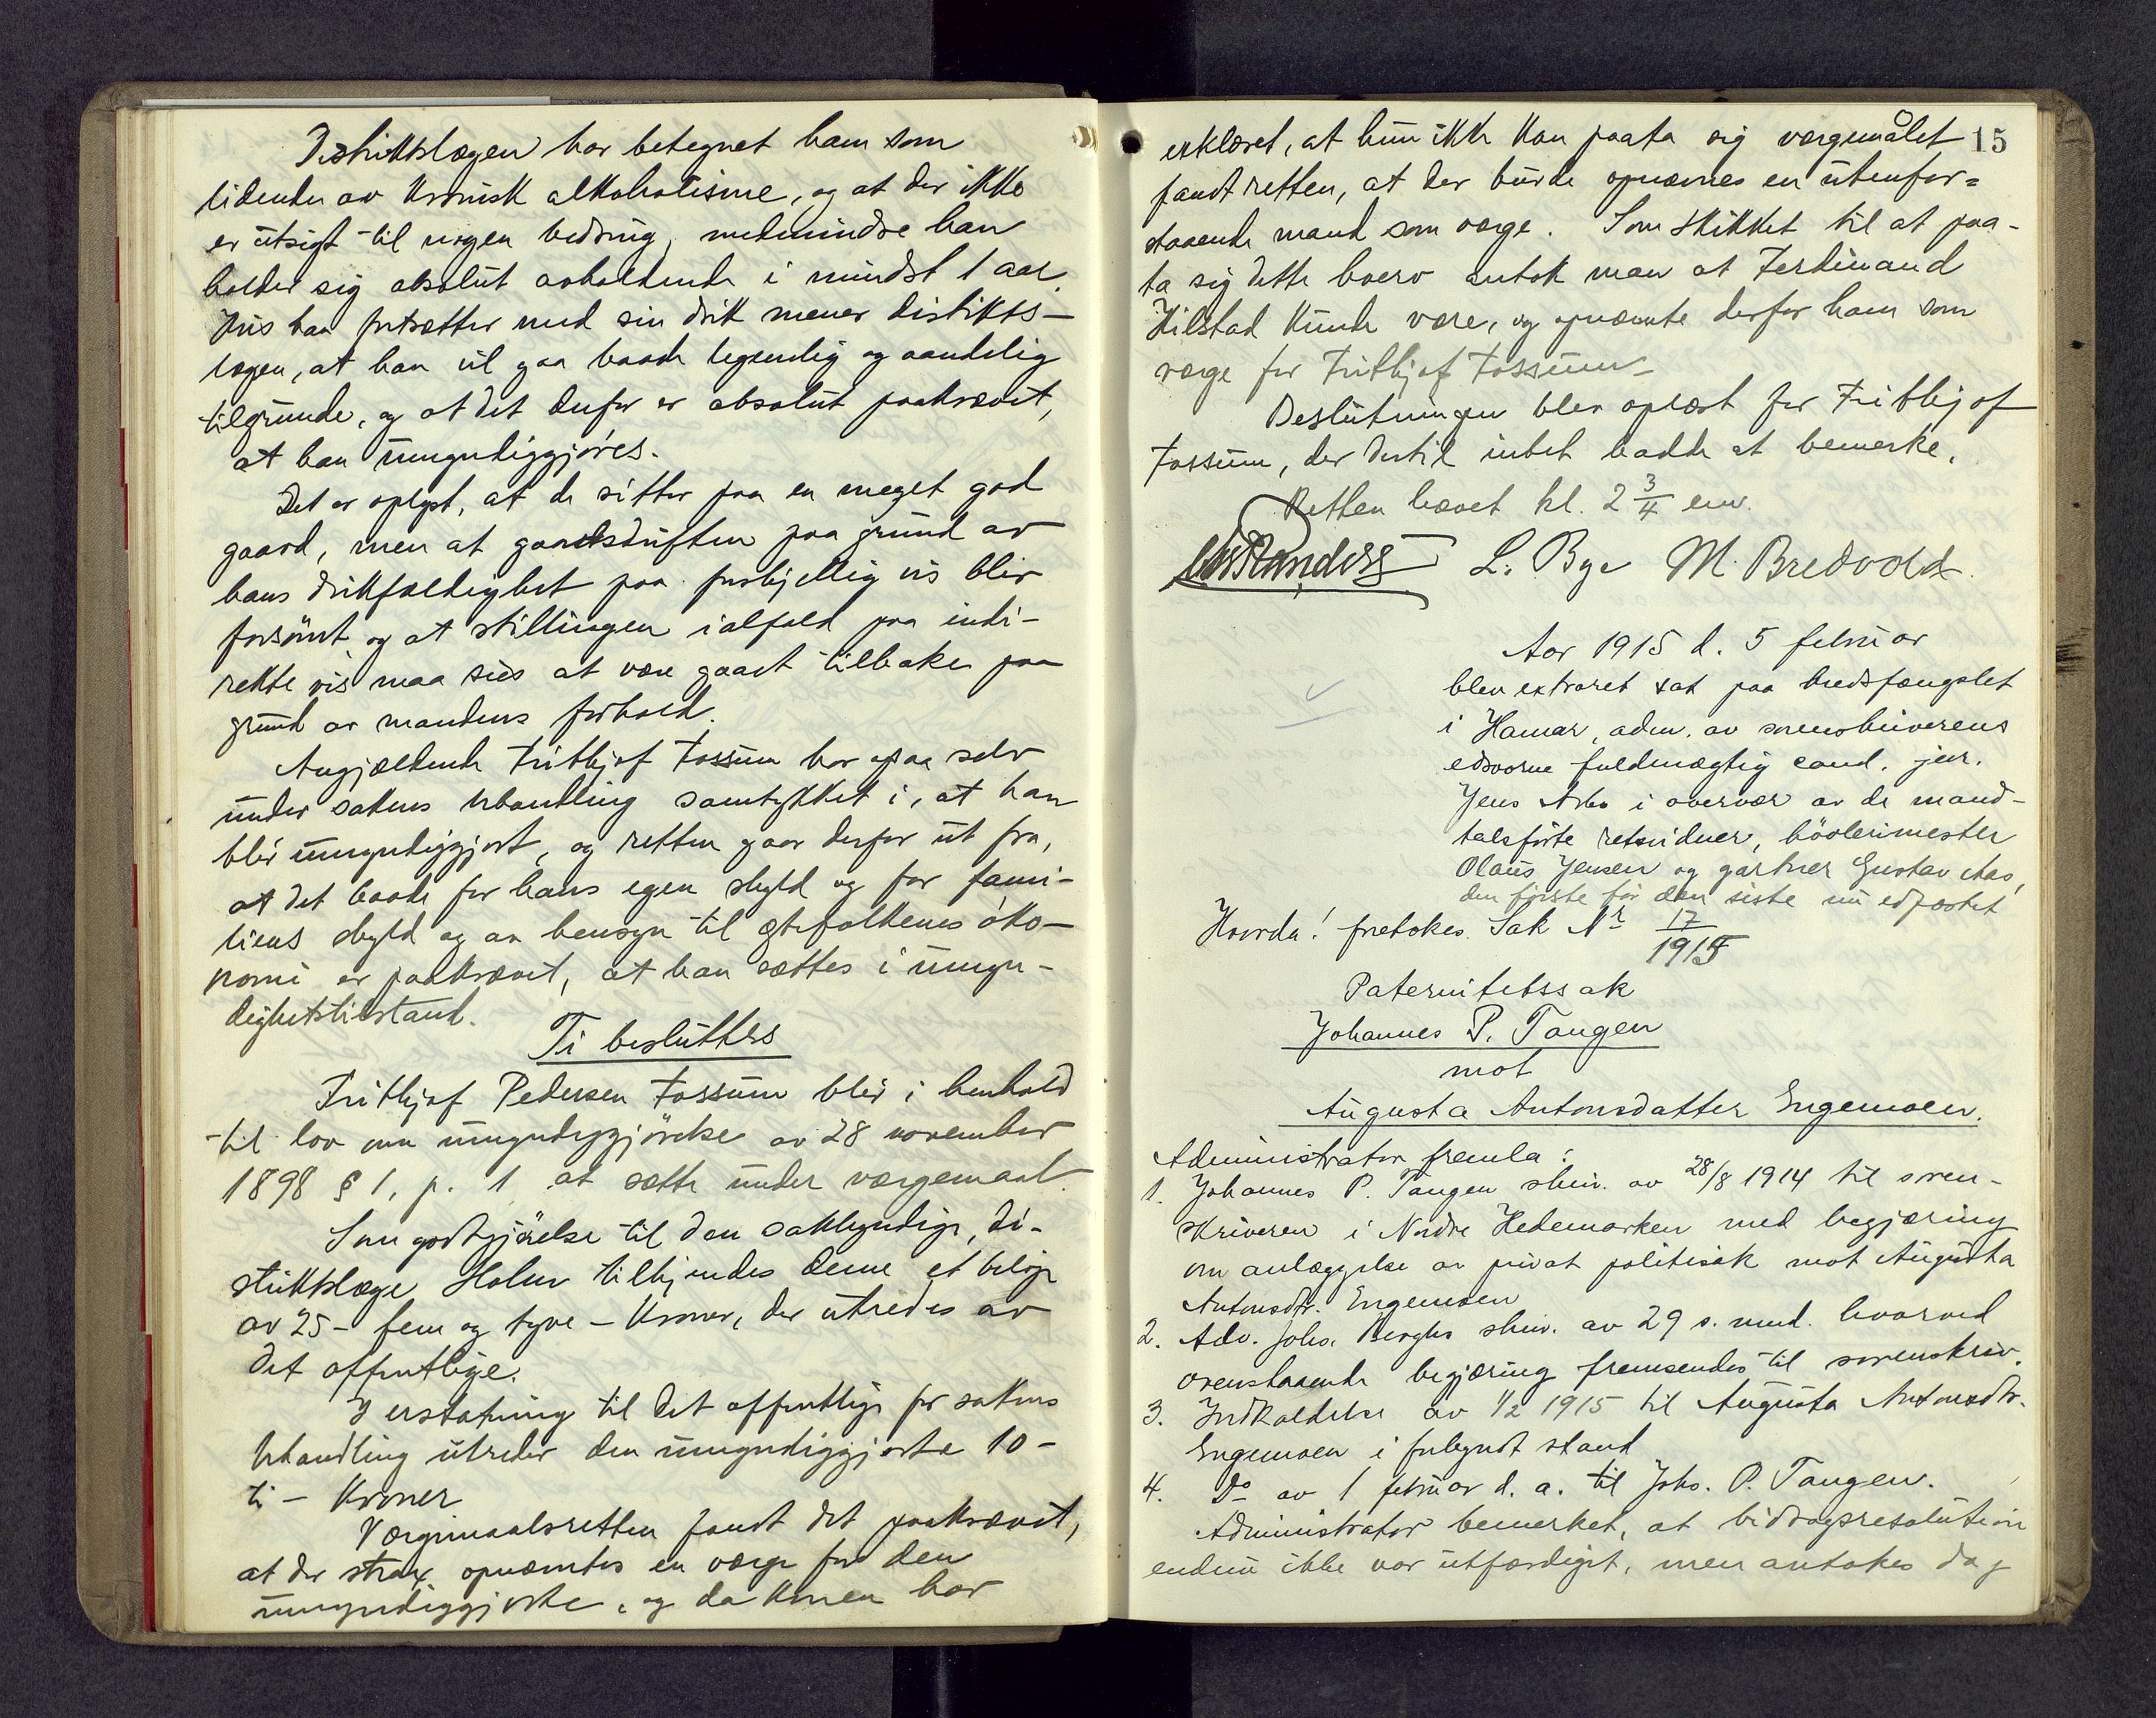 Distriktslægen har betegnet ham som
lidende av kronisk alkoholisme, og at der ikke
er utsigt til nogen bedring, medmindre han
holder sig absolut avholdende i mindst 1 aar.
Hvis han fortsætter med sin drik mener distrikts-
lægen, at han vil gaa baade legemlig og aandelig
tilgrunde, og at det derfor er absolut paakrævet,
at han umyndiggjøres.
Det er oplyst, at de sitter paa en meget god
gaard, men at gaardsdriften paa grund av
hans drikfældighet paa forskjellig vis blir
forsømt, og at stillingen ialfald paa indi-
rekte vis maa sies at være gaaet tilbake paa
grund av mandens forhold.
Angjældende Frithjof Fossum har ogsaa selv
under sakens behandling samtykket i, at han
blir umyndiggjort, og retten gaar derfor ut fra,
at det baade for hans egen skyld og for fami-
liens skyld og av hensyn til egtefolkenes øko-
nomi er paakrævet, at han sættes i umyn-
dighetstilstand.
Ti besluttes
Frithjof Pedersen Fossum blir i henhold
til lov om umyndiggjørelse av 28 november
1898 § 1, p. 1 at sætte under værgemaal.
Som godtgjørelse til den sakkyndige, di-
striktslæge Holm tilkjendes denne et beløp
av 25 - fem og tyve - Kroner, der utredes av
det offentlige.
I erstatning til det offentlige for sakens
behandling utreder den umyndiggjorte 10 -
ti - Kroner
Værgemaalsretten fandt det paakrævet,
at der strax opnævntes en værge for den
umyndiggjorte, og da konen har
15
erklæret, at hun ikke kan paata sig værgemålet
fandt retten, at der burde opnævnes en utenfor=
staaende mand som værge. Som skikket til at paa-
ta sig dette hverv antok man at Ferdinand
Kilstad kunde være, og opnævnte derfor ham som
værge for Frithjof Fossum
Beslutningen blev oplæst for Frithjof
Fossum, der dertil intet hadde at bemerke.
Retten hævet kl. 2 3/4 em.
L. Bye M. Bredvold.
Aar 1915 d. 5 februar
blev extraret sat paa kredsfængslet
i Hamar, adm. av sorenskriverens
edsvorne fuldmægtig cand. jur.
Jens Arbo i overvær av de mand-
talsførte retsvidner, bøvlerimester
Olaus Jensen og gartner Gustav Aas,
den første før den siste nu edfæstet
Hvorda! foretokes Sak Nr 17/1915
Paternitetssak
Johannes P. Tangen
mot
Augusta Antonsdatter Engemoen.
Administrator fremla:
1. Johannes P. Tangen skriv. av 28/8 1914 til soren-
skriveren i Nordre Hedemarken med begjæring
om anlæggelse av privat politisak mot Augusta
Antonsdtr. Engemoen
2. Adv. Johs. Berghs skriv. av 29 s. mnd. hvorved
ovenstaaende begjæring fremsendes til sorenskriv.
3. Indkaldelse av 1/2 1915 til Augusta Antonsdtr.
Engemoen i forkyndt stand
4. Do av 1 februar d. a. til Johs. P. Tangen.
Administrator bemerket, at bidragsresolution
endnu ikke var utfærdiget, men antokes dog